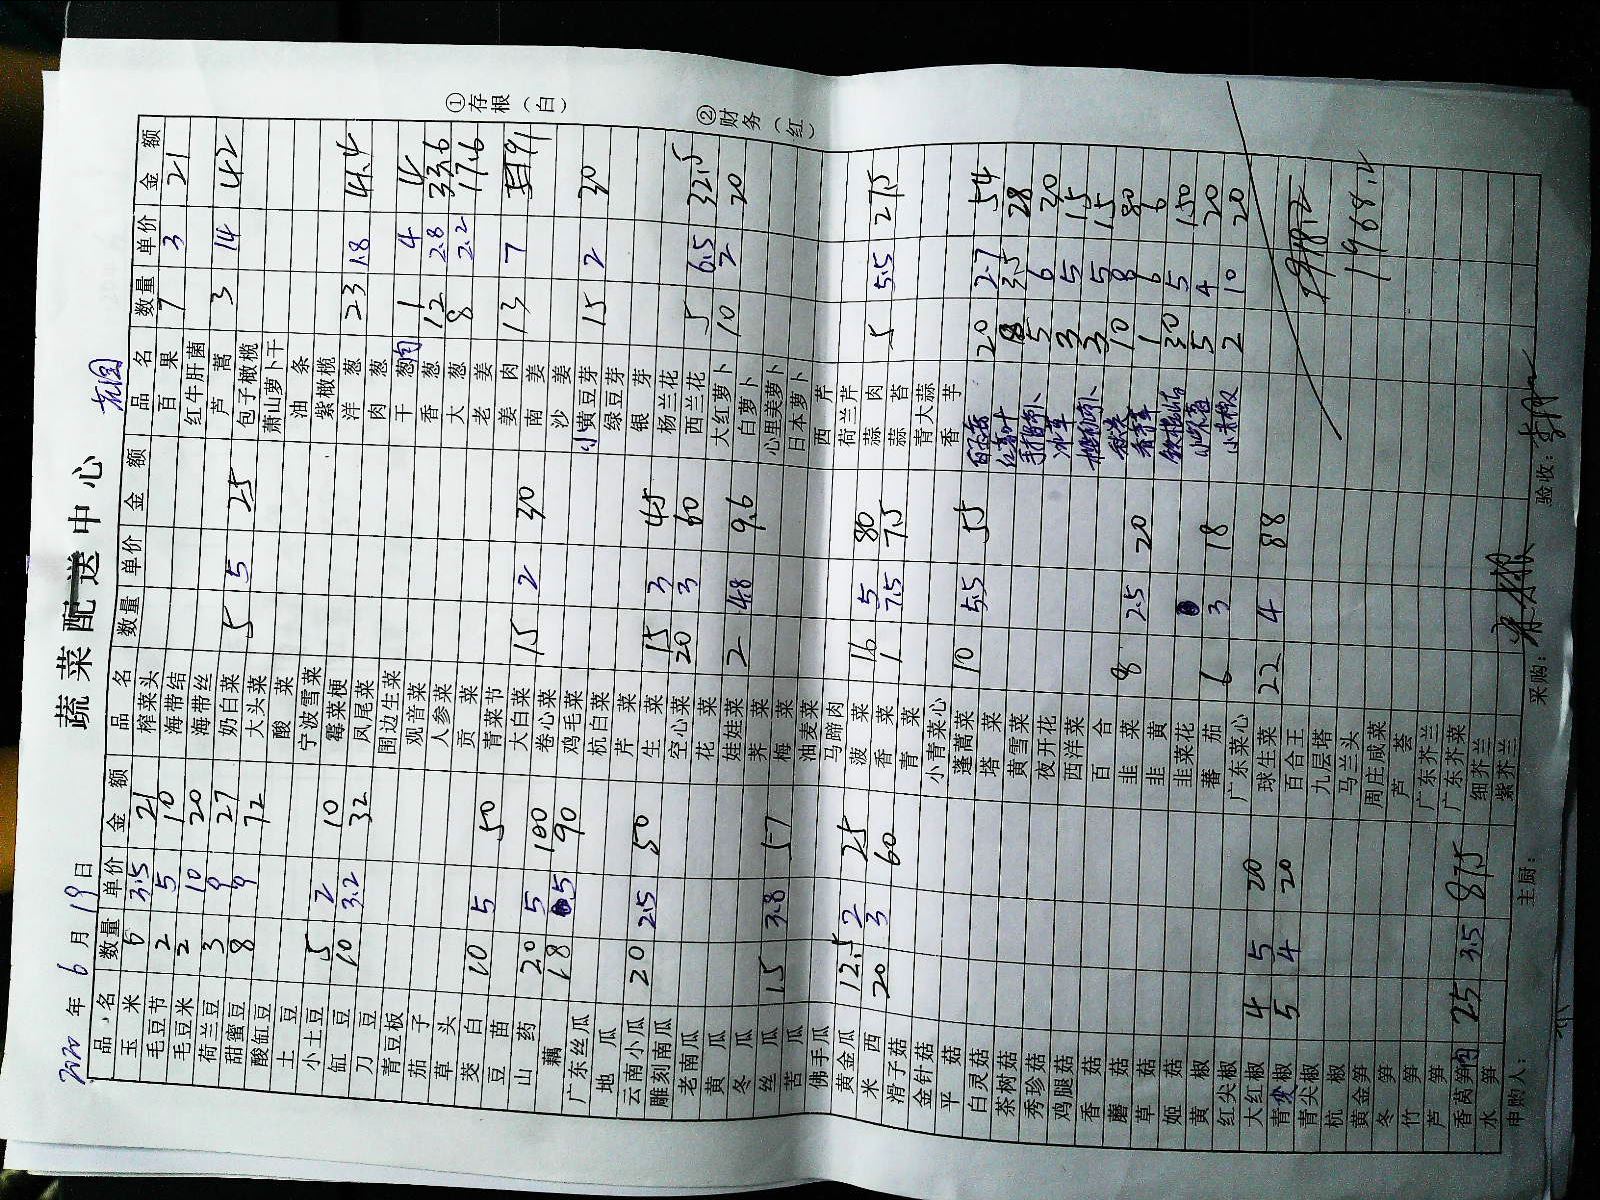 蔬菜配送中心
2020年6月19日 花园
品名 数量 单价 金额 品名 数量 单价 金额 品名 数量 单价 金额
玉米 6 3.5 21 榨菜头 百果 7 3 21
毛豆节 2 5 10 海带结 红牛肝菌
毛豆米 2 10 20 海带丝 芦蒿 3 14 42
荷兰豆 3 9 27 奶白菜 5 5 25 包子橄榄
甜蜜豆 8 9 72 大头菜 萧山萝卜干
酸缸豆 酸菜 油条
土豆 宁波雪菜 紫橄榄
小土豆 5 2 10 霉菜梗 洋葱 23 1.8 41.4
缸豆 10 3.2 32 凤尾菜 肉葱
刀豆 围边生菜 干葱肉 1 4 4
青豆板 观音菜 香葱 12 2.8 33.6
茄子 人参菜 大葱 8 2.2 17.6
草头 贡菜 老姜
茭白 10 5 50 青菜节 姜肉 13 7 91
豆苗 大白菜 15 2 30 南姜
山药 20 5 100 卷心菜 沙姜
藕 18 5 90 鸡毛菜 小黄豆芽 15 2 30
广东丝瓜 杭白菜 绿豆芽
地瓜 芹菜 银芽
云南小瓜 20 2.5 50 生菜 15 3 45 杨兰花
雕刻南瓜 空心菜 20 3 60 西兰花 5 6.5 32.5
老南瓜 花菜 大红萝卜 10 2 20
黄瓜 娃娃菜 2 4.8 9.6 白萝卜
冬瓜 荠菜 心里美萝卜
丝瓜 15 3.8 57 梅菜 日本萝卜
苦瓜 油麦菜 西芹
佛手瓜 马蹄肉 荷兰芹
黄金瓜 12.5 2 25 菠菜 16 5 80 蒜肉 5 5.5 27.5
米西 20 3 60 香菜 1 7.5 7.5 蒜苔
滑子菇 青菜 青大蒜
金针菇 小青菜心 香芋
平菇 蓬蒿菜 10 5.5 55 20 2.7 54
白灵菇 塔菜 8 3.5 28
茶树菇 黄雪菜 手指萝卜 5 6 20
秀珍菇 夜开花 冰草 3 5 15
鸡腿菇 西洋菜 3 5 15
香菇 百合 10 8 80
磨菇 韭菜 8 2.5 20 1 6 6
草菇 韭黄 30 5 150
姬菇 韭菜花 5 4 20
黄椒 蕃茄 6 3 18 小青椒 2 10 20
红尖椒 广东菜心
大红椒 4 5 20 球生菜 22 4 88
青尖椒 5 4 20 百合王
青尖椒 九层塔
杭椒 马兰头 1968.2
黄金笋 周庄咸菜
冬笋 芦荟
竹笋 广东芥兰
芦笋 广东芥菜
香莴笋肉 25 3.5 87.5 细芥兰
水笋 紫芥兰
申购人: 主厨: 采购: 验收:
①存根(白)
②财务(红)